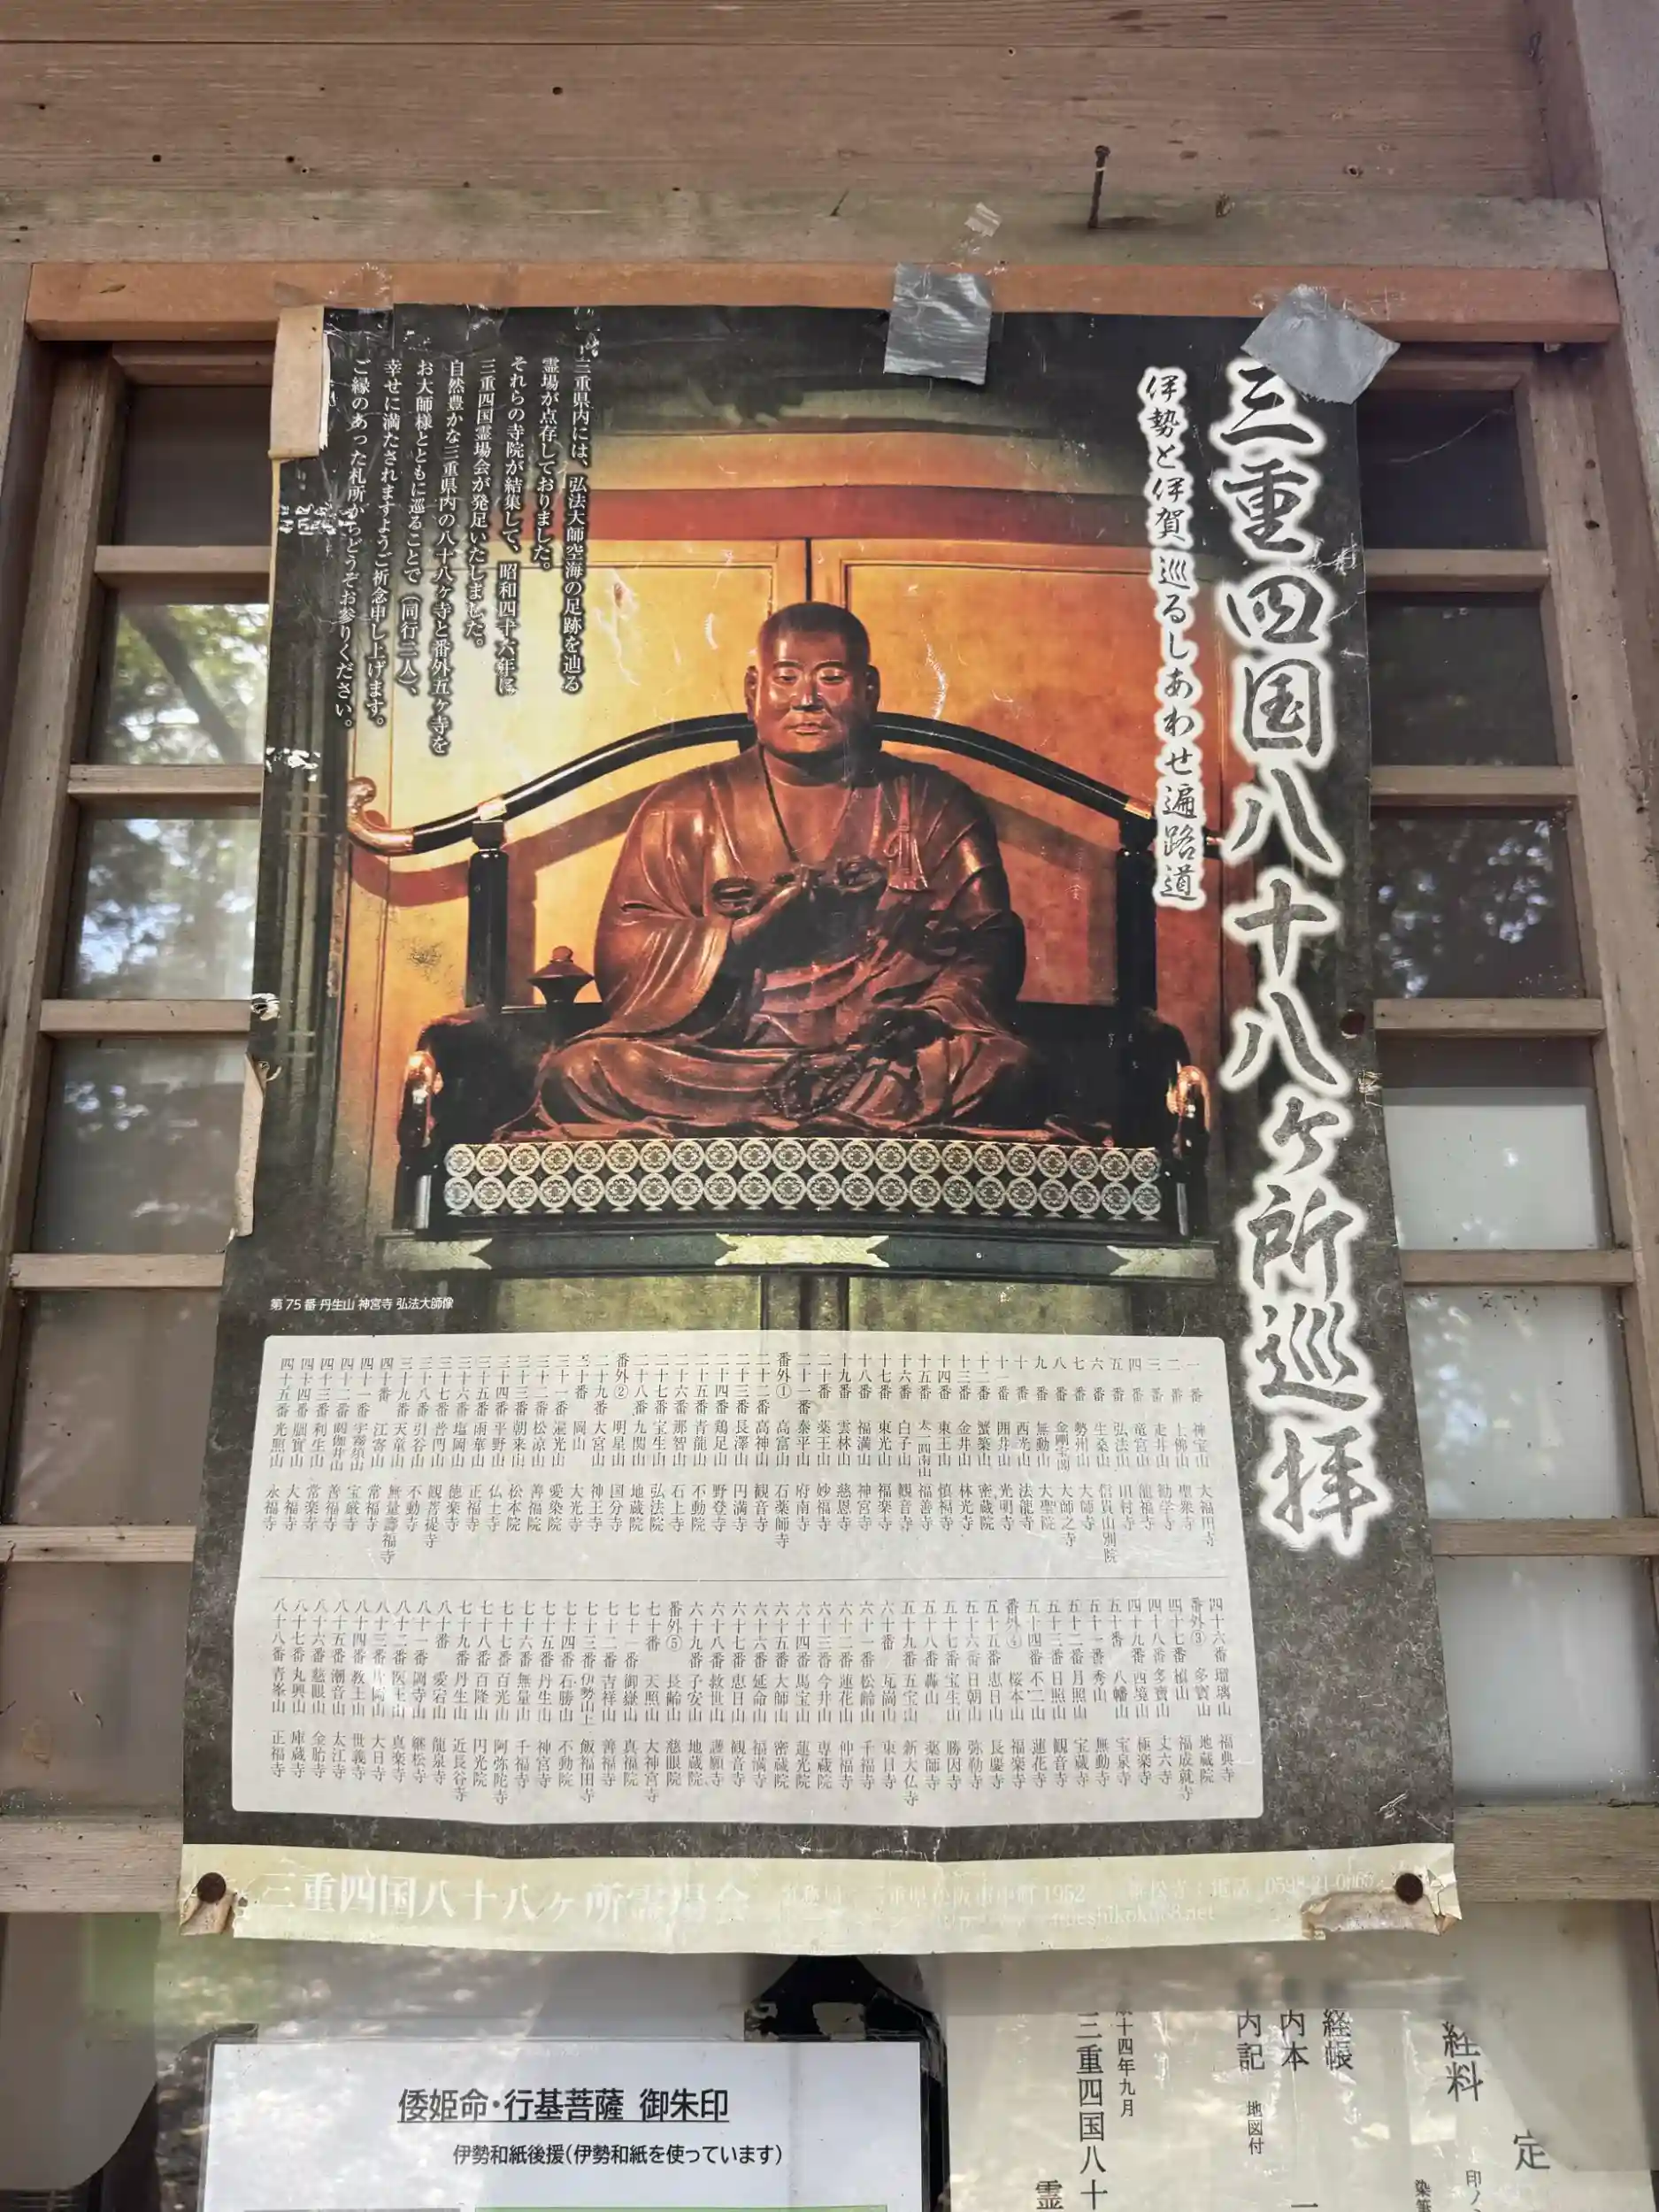 三重四国八十八ヶ所巡拝
伊勢と伊賀 巡るしあわせ遍路道
三重県内には、弘法大師空海の足跡を辿る
霊場が点存しておりました。
それらの寺院が結集して、昭和四十六年に
三重四国霊場会が発足いたしました。
自然豊かな三重県内の八十八ヶ寺と番外五ヶ寺を
お大師様とともに巡ることで（同行二人）、
幸せに満たされますようご祈念申し上げます。
ご縁のあった札所からどうぞお参りください。
第75番 丹生山 神宮寺 弘法大師像
一番 神宝山 大福田寺
二番 上佛山 聖衆寺
三番 走井山 勧学寺
四番 竜宮山 龍福寺
五番 弘法山 田村寺
六番 生桑山 信貴山別院
七番 勢州山 大師寺
八番 金剛宝閣 大師之寺
九番 無動山 大聖院
十番 西光山 法龍寺
十一番 囲井山 光明寺
十二番 蟹築山 密蔵院
十三番 金井山 林光寺
十四番 東王山 慎福寺
十五番 福善寺
十六番 白子山 観音寺
十七番 東光山 福楽寺
十八番 福満山 神宮寺
十九番 雲林山 慈恩寺
二十番 薬王山 妙福寺
二十一番 泰平山 府南寺
番外① 高富山 石薬師寺
二十二番 高神山 観音寺
二十三番 長澤山 円満寺
二十四番 鶏足山 野登寺
二十五番 青龍山 不動院
二十六番 那智山 石上寺
二十七番 宝生山 弘法院
二十八番 九関山 地蔵院
番外② 明星山 国分寺
二十九番 大宮山 神王寺
三十番 岡山 大光寺
三十一番 遍光山 愛染院
三十二番 松凉山 善福院
三十三番 朝来山 松本院
三十四番 平野山 仏土寺
三十五番 雨葉山 正福寺
三十六番 塩岡山 徳楽寺
三十七番 普門山 観菩提寺
三十八番 引谷山 不動寺
三十九番 天童山 無量壽福寺
四十番 江寄山 常福寺
四十一番 宇霧須山 宝厳寺
四十二番 閼伽井山 善福寺
四十三番 利生山 常楽寺
四十四番 胭實山 大福寺
四十五番 光照山 永福寺
四十六番 瑠璃山 福典寺
番外③ 多寳山 地蔵院
四十七番 福成就寺
四十八番 多寶山 丈六寺
四十九番 西境山 極楽寺
五十番 八幡山 宝泉寺
五十一番 秀山 無動寺
五十二番 月照山 宝蔵寺
五十三番 日照山 観音寺
五十四番 不二山 蓮花寺
番外④ 桜本山 福楽寺
五十五番 恵日山 長慶寺
五十六番 日朝山 弥勒寺
五十七番 宝生山 勝因寺
五十八番 轟山 薬師寺
五十九番 五宝山 新大仏寺
六十番 瓦岗山 東日寺
六十一番 松齢山 千福寺
六十二番 蓮花山 仲福寺
六十三番 今井山 専蔵院
六十四番 馬宝山 蓮光院
六十五番 大師山 密蔵院
六十六番 延命山 福満寺
六十七番 恵日山 観音寺
六十八番 救世山 護願寺
六十九番 子安山 地蔵院
番外⑤ 長齢山 慈眼院
七十番 天照山 大神宮寺
七十一番 御嶽山 真福院
七十二番 吉祥山 善福寺
七十三番 伊勢山上 飯福田寺
七十四番 石勝山 不動院
七十五番 丹生山 神宮寺
七十六番 無量山 千福寺
七十七番 百光山 阿弥陀寺
七十八番 百隆山 円光院
七十九番 丹生山 近長谷寺
八十番 愛宕山 龍泉寺
八十一番 岡寺山 継松寺
八十二番 医王山 真楽寺
八十三番 片岡山 大日寺
八十四番 教主山 世義寺
八十五番 潮音山 太江寺
八十六番 慈眼山 金胎寺
八十七番 丸興山 庫蔵寺
八十八番 青峯山 正福寺
三重四国八十八ヶ所霊場会
三重県松阪市中町1952
継松寺 電話 0598-21-0965
倭姫命・行基菩薩 御朱印
伊勢和紙後援(伊勢和紙を使っています)
定
経料
印ノ
染筆
経帳
内本
内記 地図付
十四年九月
三重四国八十
霊